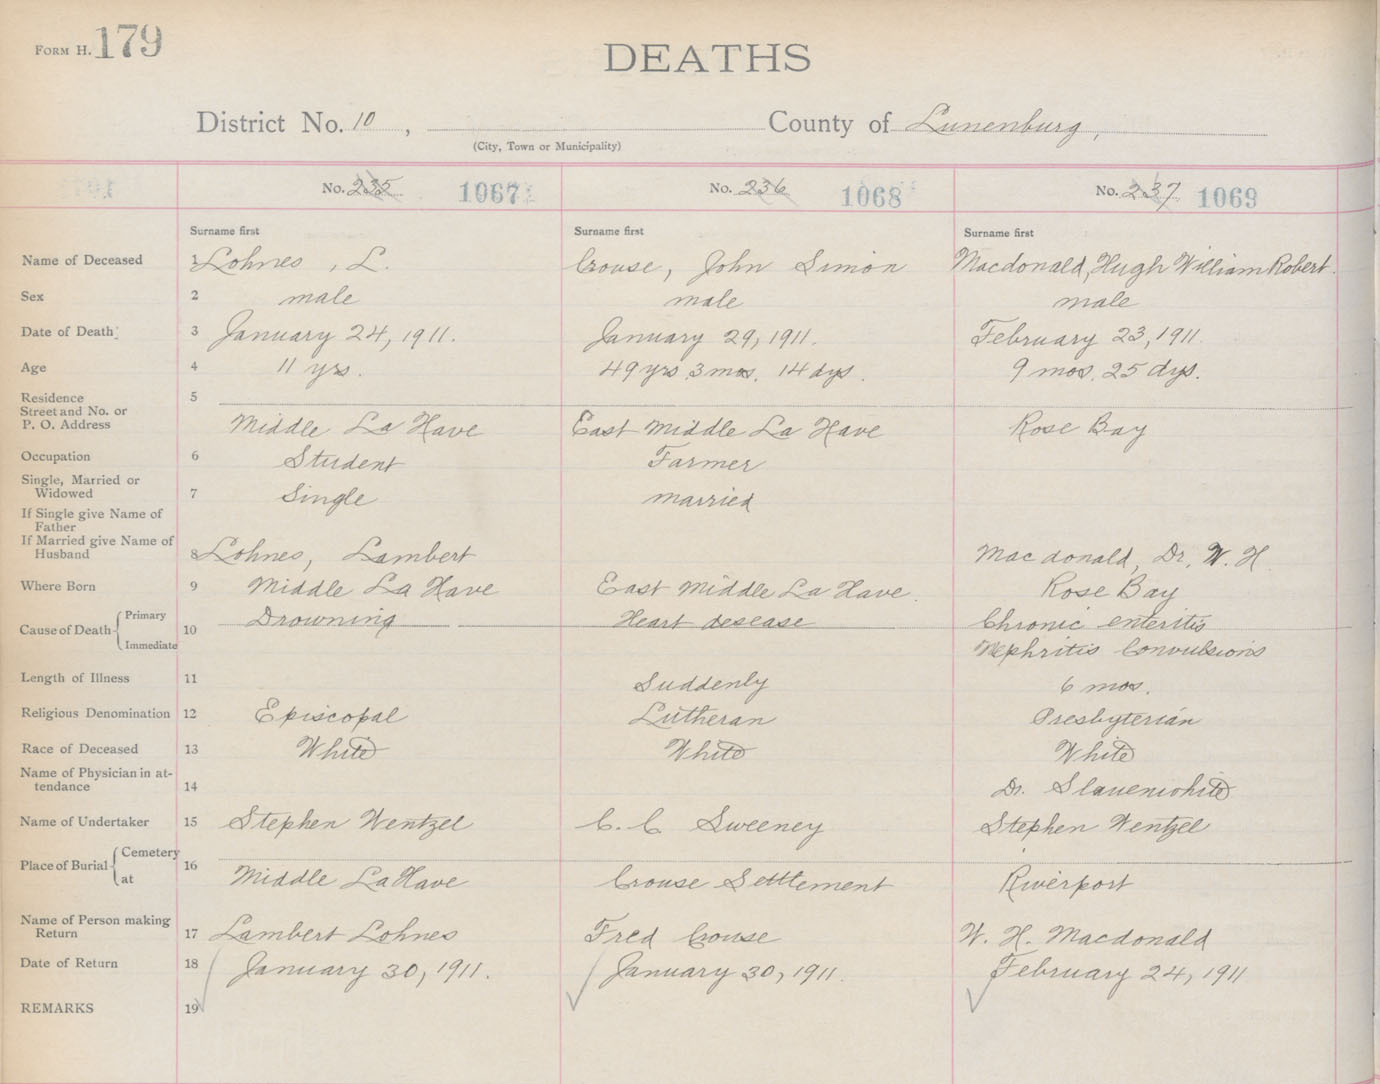 FORM H. 179
DEATHS
District No. 10, County of Lunenburg,
(City, Town or Municipality)
No. 235 1067 No. 236 1068 No. 237 1069
Surname first Surname first Surname first
Name of Deceased 1 Lohnes, L. Crouse, John Simon Macdonald, Hugh William Robert.
Sex 2 male male male
Date of Death 3 January 24, 1911. January 29, 1911. February 23, 1911
Age 4 11 yrs. 49 yrs 3 mos. 14 dys. 9 mos. 25 dys.
Residence 5
Street and No. or
P. O. Address Middle La Have East Middle La Have Rose Bay
Occupation 6 Student Farmer
Single, Married or
Widowed 7 Single married
If Single give Name of
Father
If Married give Name of
Husband 8 Lohnes, Lambert Macdonald, Dr. W. H.
Where Born 9 Middle La Have East Middle La Have. Rose Bay
Cause of Death Primary 10 Drowning Heart desease Chronic enteritis
Immediate Nephritis Convulsions
Length of Illness 11 Suddenly 6 mos.
Religious Denomination 12 Episcopal Lutheran Presbyterian
Race of Deceased 13 White White White
Name of Physician in at-
tendance 14 Dr. Slauenwhite
Name of Undertaker 15 Stephen Wentzel C. C. Sweeney Stephen Wentzel
Place of Burial Cemetery 16
at Middle LaHave Crouse Settlement Riverport
Name of Person making
Return 17 Lambert Lohnes Fred Crouse W. H. Macdonald
Date of Return 18 January 30, 1911. January 30, 1911. February 24, 1911
REMARKS 19